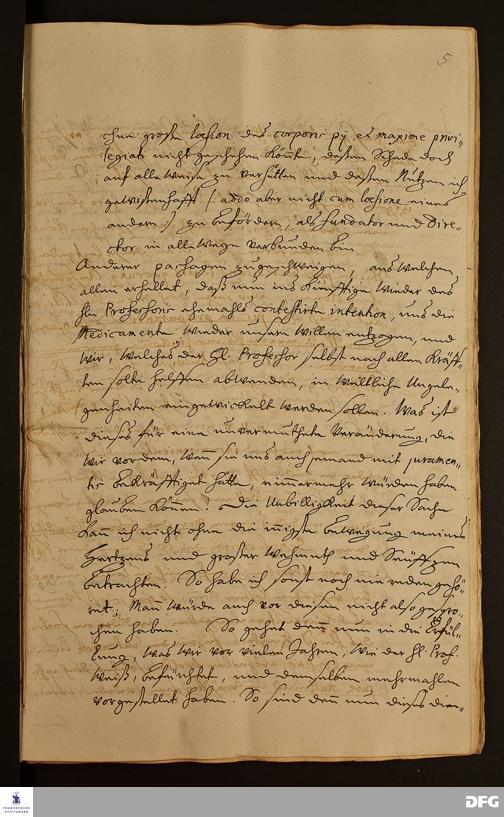 5
ohne große læsion des corporis pij et maxime privi-
legiati nicht geschehen könte, deßen Schade doch
auf alle Weise zu verhüten und deßen Nutzen ich
gewissenhafft /: addo aber nicht cum læsione eines
andern :/ zu befördern, als fundator und Dire-
ctor in alle Wege verbunden bin
Anderer passagen zugeschweigen, aus welchen
allen erhellet, daß nun ins künfftige wieder des
Hn Professoris ehemahls contestirte intention, uns die
Medicamente wieder unsern Willen entzogen, und
wir, welches der Hl. Professor selbst nach allen Kräff-
ten solte helffen abwenden, in weltliche Ungele-
genheiten eingewickelt werden sollen. Was ist
dieses für eine unvermuthete Veränderung, die
wir vordem, wenn sie uns auch jemand mit juramen-
tis bekräfftiget hätte, nimmermehr würden haben
glauben können! Die Unbilligkeit dieser Sache
kan ich nicht ohne die innigste bewegung meines
Hertzens und großer Wehmuth und Seufftzen
betrachten. So habe ich sonst noch nie reden gehö-
ret; Man würde auch vor diesen nicht also gespro-
chen haben. So gehet denn nun in die Erfül-
lung, was wir vor vielen Jahren, wie der Hl. Prof.
weiß, befürchtet, und demselben mehrmahlen
vorgestellet haben. So sind den nun dieses die-
FRANCKESCHE STIFTUNGEN
DFG